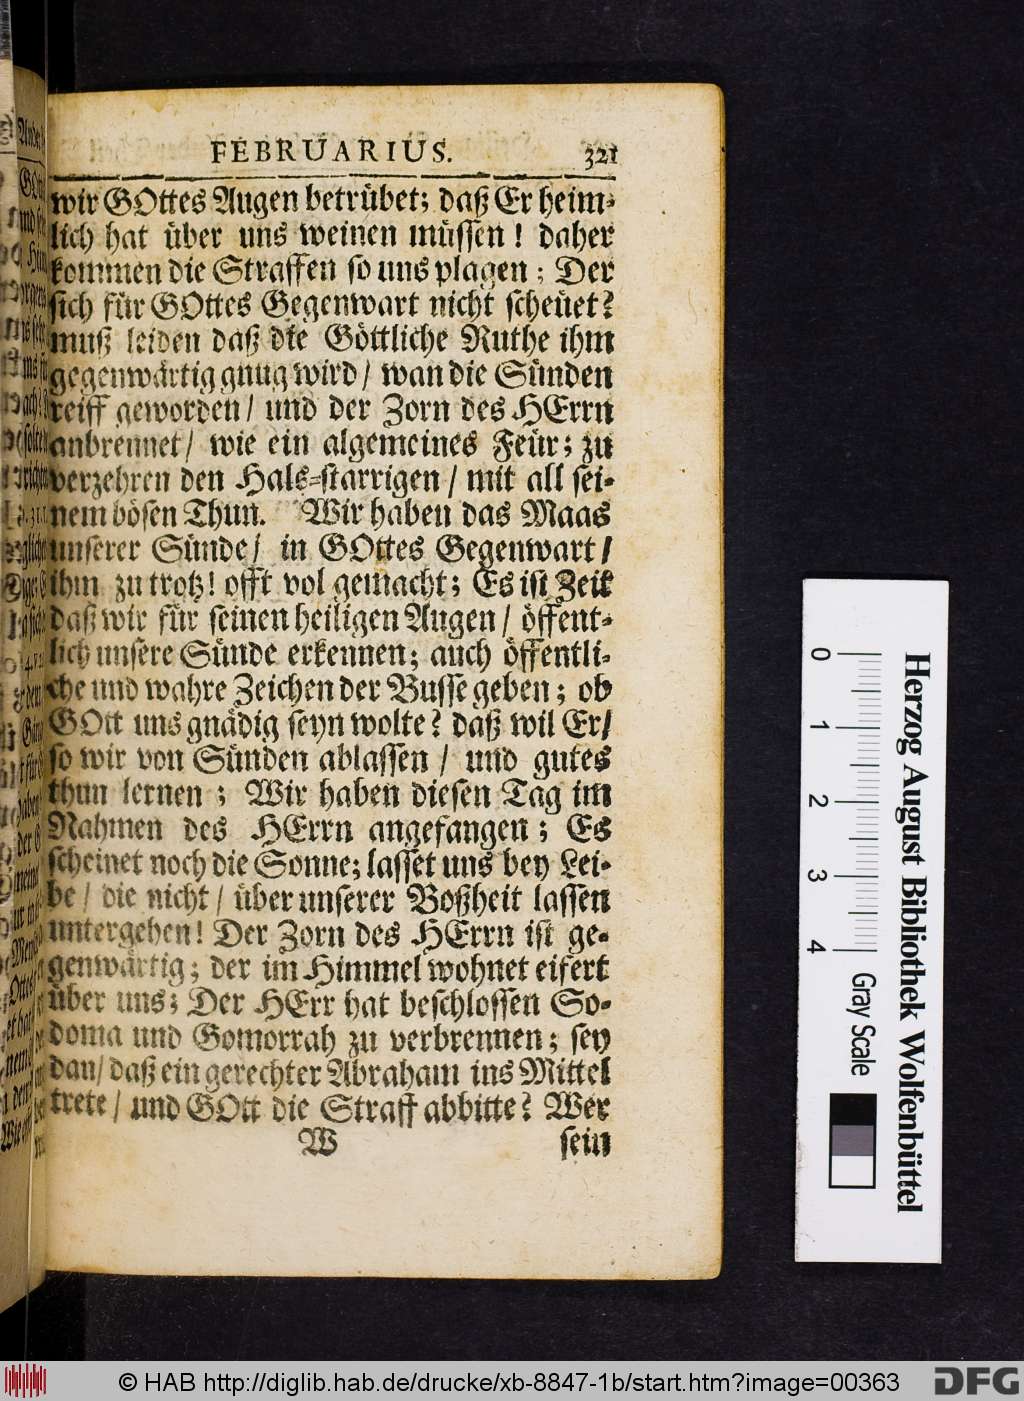 FEBRUARIUS. 321
wir GOttes Augen betrübet; daß Er heim-
lich hat über uns weinen müssen! daher
kommen die Straffen so uns plagen; Der
sich für GOttes Gegenwart nicht scheüet?
muß leiden daß die Göttliche Ruthe ihm
gegenwärtig gnug wird/ wan die Sünden
reiff geworden/ und der Zorn des HErrn
anbrennet/ wie ein algemeines Feür; zu
verzehren den Hals-starrigen/ mit all sei-
nem bösen Thun. Wir haben das Maas
unserer Sünde/ in GOttes Gegenwart/
ihm zu trotz! offt vol gemacht; Es ist Zeit
daß wir für seinen heiligen Augen/ öffent-
lich unsere Sünde erkennen; auch öffentli-
che und wahre Zeichen der Busse geben; ob
GOtt uns gnädig seyn wolte? daß wil Er/
so wir von Sünden ablassen/ und gutes
thun lernen; Wir haben diesen Tag im
Nahmen des HErrn angefangen; Es
scheinet noch die Sonne; lasset uns bey Lei-
be/ die nicht/ über unserer Boßheit lassen
untergehen! Der Zorn des HErrn ist ge-
genwärtig; der im Himmel wohnet eifert
über uns; Der HErr hat beschlossen So-
doma und Gomorrah zu verbrennen; sey
dan/ daß ein gerechter Abraham ins Mittel
trete/ und GOtt die Straff abbitte? Wer
W sein
0 1 2 3 4 Gray Scale
Herzog August Bibliothek Wolfenbüttel
© HAB http://diglib.hab.de/drucke/xb-8847-1b/start.htm?image=00363 DFG